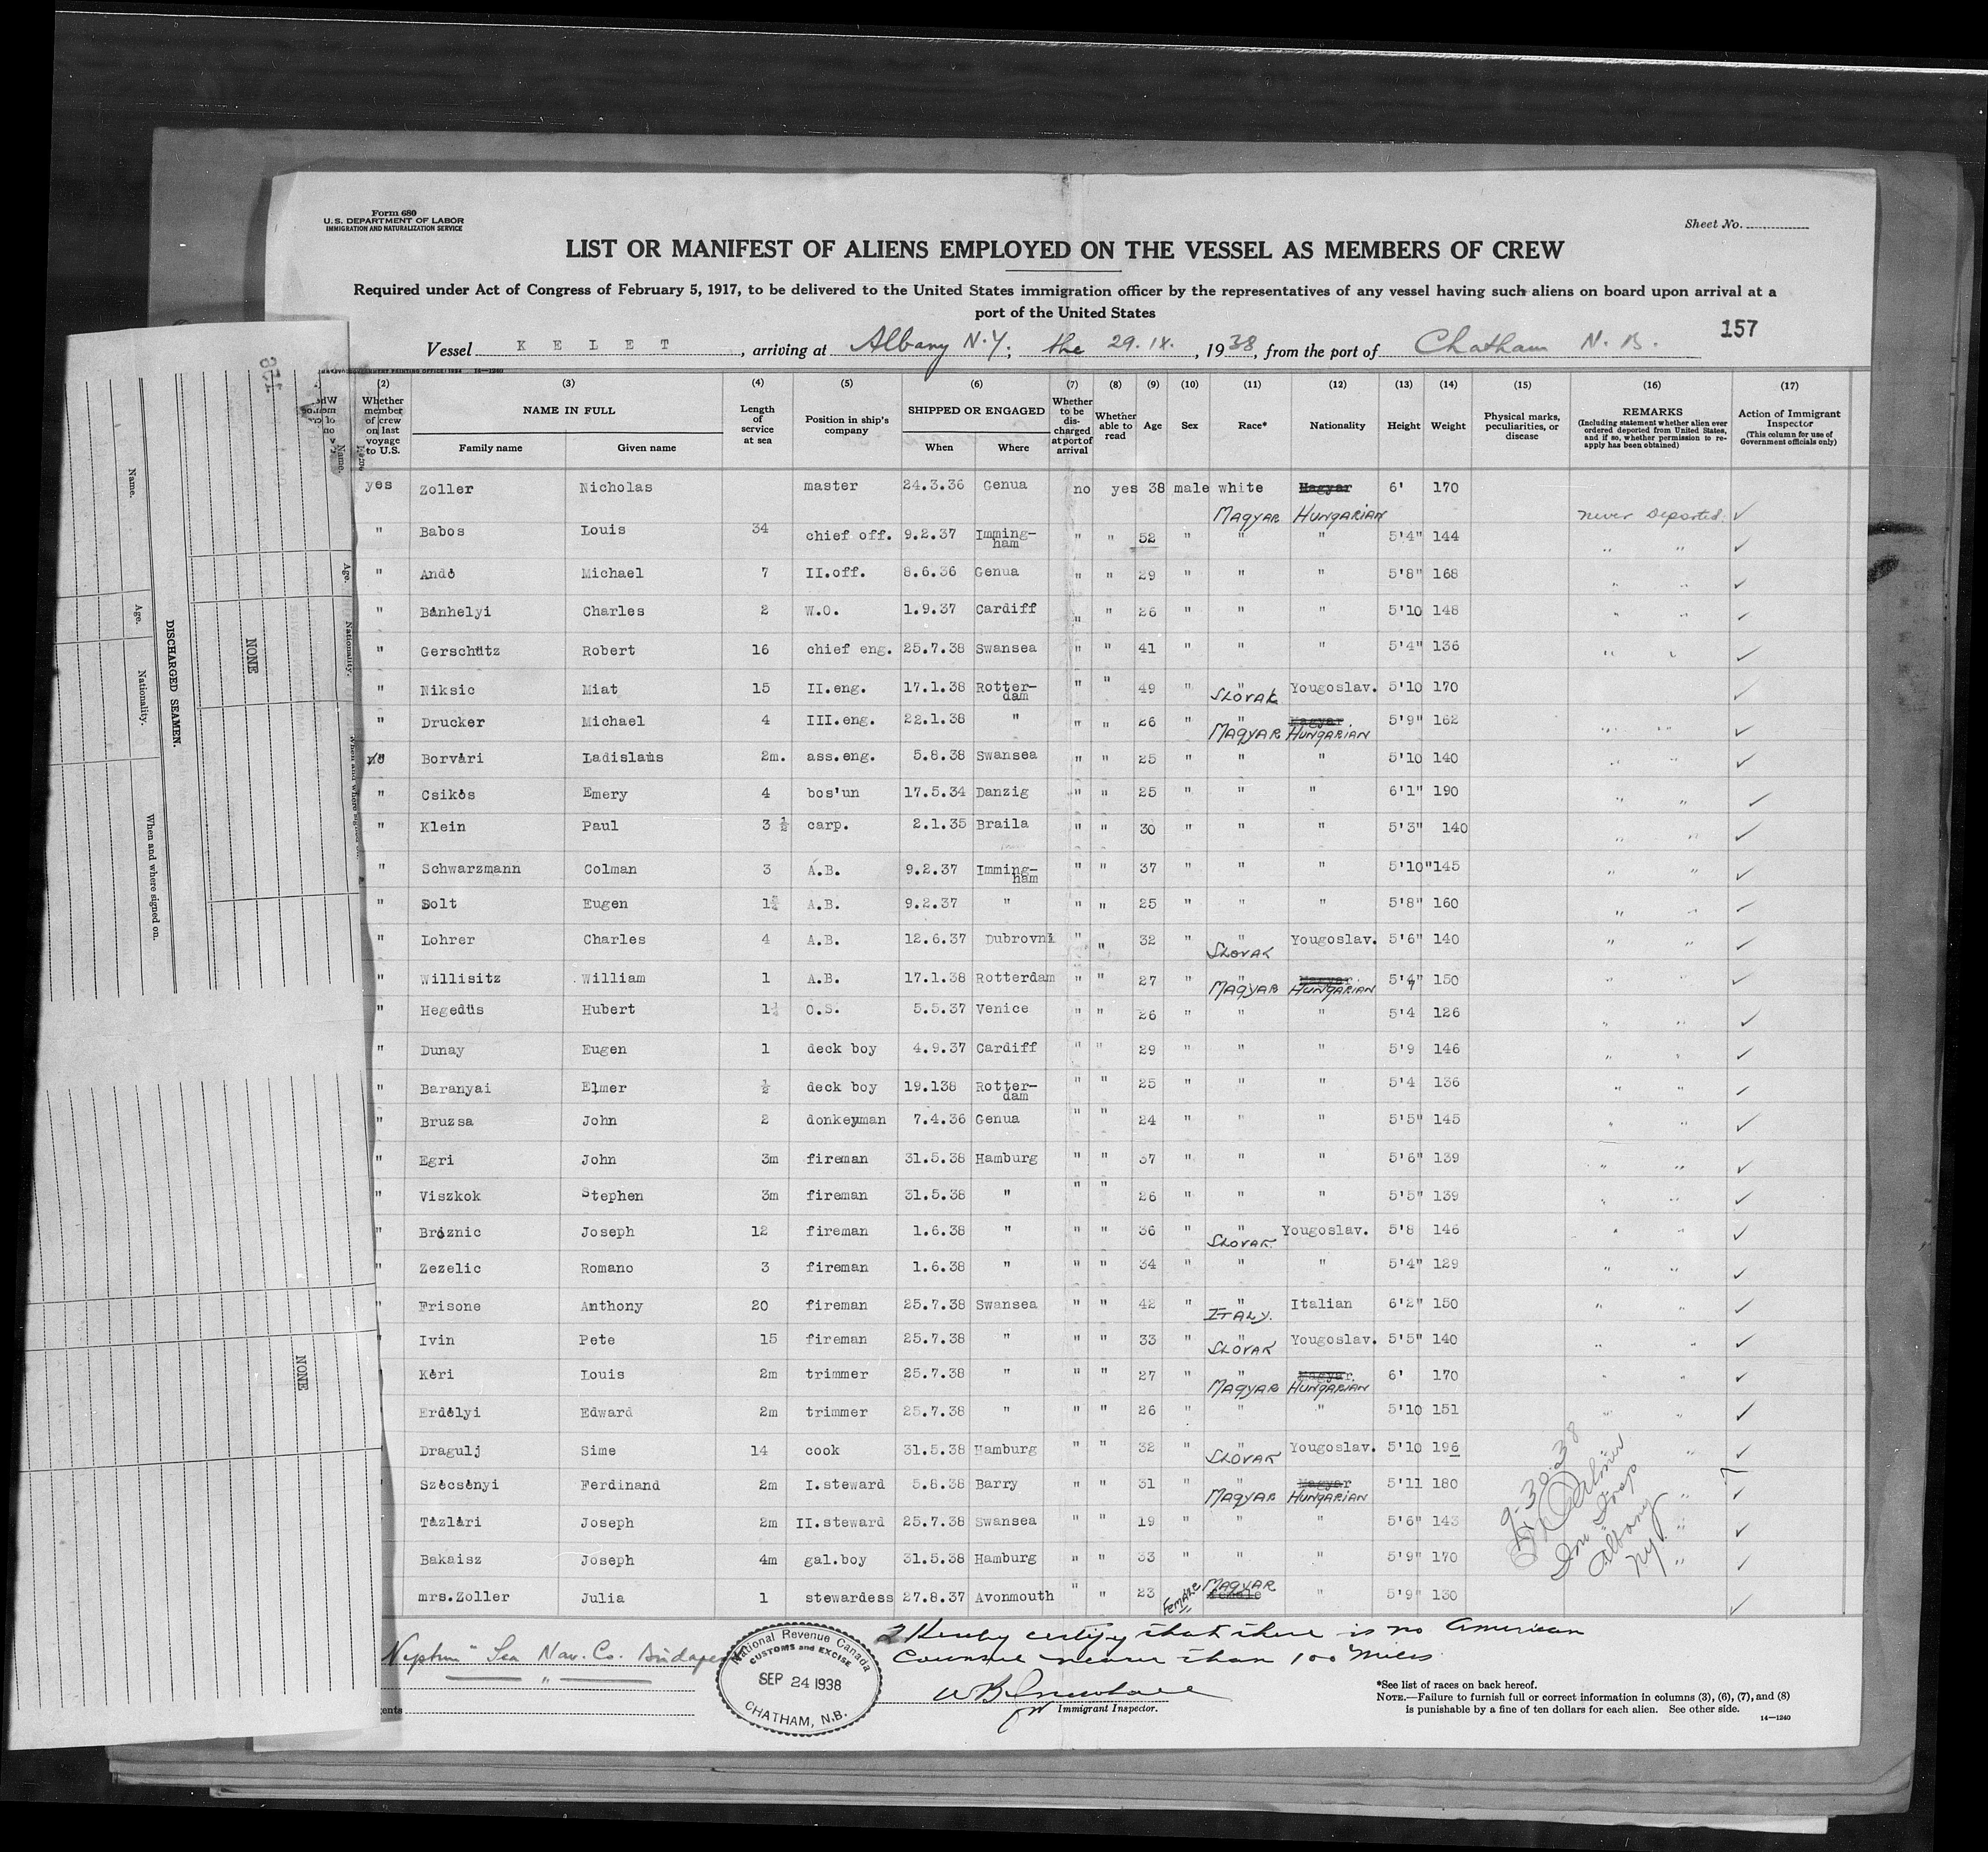 Form 680
U.S. DEPARTMENT OF LABOR
IMMIGRATION AND NATURALIZATION SERVICE
Sheet No.
LIST OR MANIFEST OF ALIENS EMPLOYED ON THE VESSEL AS MEMBERS OF CREW
Required under Act of Congress of February 5, 1917, to be delivered to the United States immigration officer by the representatives of any vessel having such aliens on board upon arrival at a
port of the United States
157
Vessel K E L E T, arriving at Albany N.Y; the 29. IX., 1938, from the port of Chatham N. B.
(2) (3) (4) (5) (6) (7) (8) (9) (10) (11) (12) (13) (14) (15) (16) (17)
Whether member of crew on last voyage to U.S.
NAME IN FULL
Family name Given name
Length of service at sea
Position in ship's company
SHIPPED OR ENGAGED
When Where
Whether to be discharged at port of arrival
Whether able to read
Age
Sex
Race*
Nationality
Height
Weight
Physical marks, peculiarities, or disease
REMARKS
(Including statement whether alien ever ordered deported from United States, and if so, whether permission to reapply has been obtained)
Action of Immigrant Inspector
(This column for use of Government officials only)
yes Zoller Nicholas master 24.3.36 Genua no yes 38 male white Magyar 6' 170
MAGYAR HUNGARIAN never deported ✓
" Babos Louis 34 chief off. 9.2.37 Imming-ham " " 52 " " " 5'4" 144 " " ✓
" Andó Michael 7 II.off. 8.6.36 Genua " " 29 " " " 5'8" 168 " " ✓
" Bánhelyi Charles 2 W.O. 1.9.37 Cardiff " " 26 " " " 5'10 148 " " ✓
" Gerschütz Robert 16 chief eng. 25.7.38 Swansea " " 41 " " " 5'4" 136 " " ✓
" Niksic Miat 15 II.eng. 17.1.38 Rotter-dam " " 49 " " SLOVAK Yougoslav. 5'10 170 ✓
" Drucker Michael 4 III.eng. 22.1.38 " " " 26 " " MAGYAR Magyar HUNGARIAN 5'9" 162 " " ✓
no Borvári Ladislaus 2m. ass.eng. 5.8.38 Swansea " " 25 " " " 5'10 140 " " ✓
" Csikós Emery 4 bos'un 17.5.34 Danzig " " 25 " " " 6'1" 190 " " ✓
" Klein Paul 3 ½ carp. 2.1.35 Braila " " 30 " " " 5'3" 140 " " ✓
" Schwarzmann Colman 3 A.B. 9.2.37 Imming-ham " " 37 " " " 5'10" 145 " " ✓
" Solt Eugen A.B. 9.2.37 " " " 25 " " " 5'8" 160 " " ✓
" Lohrer Charles 4 A.B. 12.6.37 Dubrovni " " 32 " " SLOVAK Yougoslav. 5'6" 140 " " ✓
" Willisitz William 1 A.B. 17.1.38 Rotterdam " " 27 " " MAGYAR Magyar HUNGARIAN 5'4" 150 " " ✓
" Hegedüs Hubert O.S. 5.5.37 Venice " " 26 " " " 5'4 126 " " ✓
" Dunay Eugen 1 deck boy 4.9.37 Cardiff " " 29 " " " 5'9 146 " " ✓
" Baranyai Elmer ½ deck boy 19.138 Rotter-dam " " 25 " " " 5'4 136 " " ✓
" Bruzsa John 2 donkeyman 7.4.36 Genua " " 24 " " " 5'5" 145 " " ✓
" Egri John 3m fireman 31.5.38 Hamburg " " 37 " " " 5'6" 139 " " ✓
" Viszkok Stephen 3m fireman 31.5.38 " " " 26 " " " 5'5" 139 " " ✓
" Bróznic Joseph 12 fireman 1.6.38 " " " 36 " " SLOVAK Yougoslav. 5'8 146 " " ✓
" Zezelic Romano 3 fireman 1.6.38 " " " 34 " " " 5'4" 129 " " ✓
" Frisone Anthony 20 fireman 25.7.38 Swansea " " 42 " " ITALY. Italian 6'2" 150 " " ✓
" Ivin Pete 15 fireman 25.7.38 " " " 33 " " SLOVAK Yougoslav. 5'5" 140 " " ✓
" Kéri Louis 2m trimmer 25.7.38 " " " 27 " " MAGYAR Magyar. HUNGARIAN 6' 170 " " ✓
Erdélyi Edward 2m trimmer 25.7.38 " " " 26 " " " 5'10 151 " " ✓
Dragulj Sime 14 cook 31.5.38 Hamburg " " 32 " " SLOVAK Yougoslav. 5'10 196 " ✓
Szécsényi Ferdinand 2m I.steward 5.8.38 Barry " " 31 " " MAGYAR Magyar HUNGARIAN 5'11 180 " ✓
Tázlári Joseph 2m II.steward 25.7.38 Swansea " " 19 " " " 5'6" 143 " ✓
Bakaisz Joseph 4m gal.boy 31.5.38 Hamburg " " 33 " " " 5'9" 170 " ✓
mrs.Zoller Julia 1 stewardess 27.8.37 Avonmouth " " 23 FEMALE MAGYAR female " 5'9" 130 ✓
9-30-38
Imm Insp
Albany
NY.
"Neptun" Sea Nav. Co. Budapest
"
National Revenue Canada
CUSTOMS and EXCISE
SEP 24 1938
CHATHAM, N.B.
I Hereby certify that there is no American
Counsul nearer than 100 Miles
Immigrant Inspector.
*See list of races on back hereof.
NOTE.—Failure to furnish full or correct information in columns (3), (6), (7), and (8)
is punishable by a fine of ten dollars for each alien. See other side.
14—1240
Name.
Age.
Nationality.
When and where signed on.
DISCHARGED SEAMEN.
NONE
Name.
Age.
Nationality.
NONE